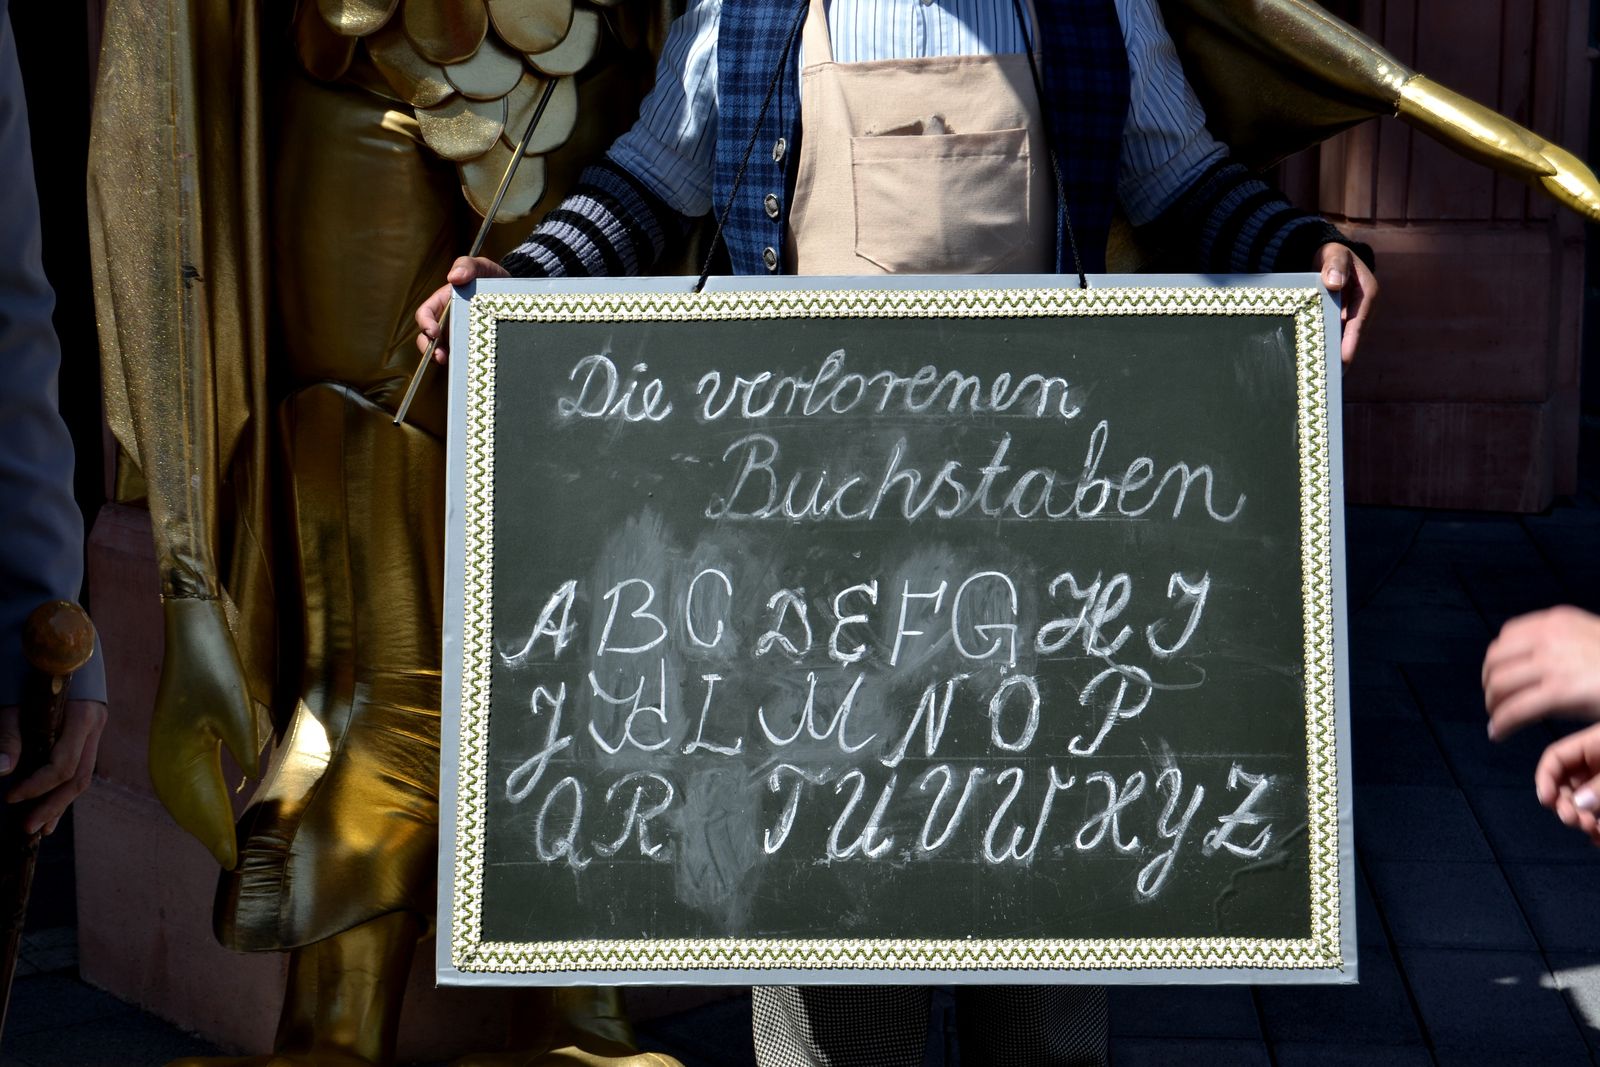 Die verlorenen
Buchstaben
A B C D E F G H I
J K L M N O P
Q R T U V W X Y Z